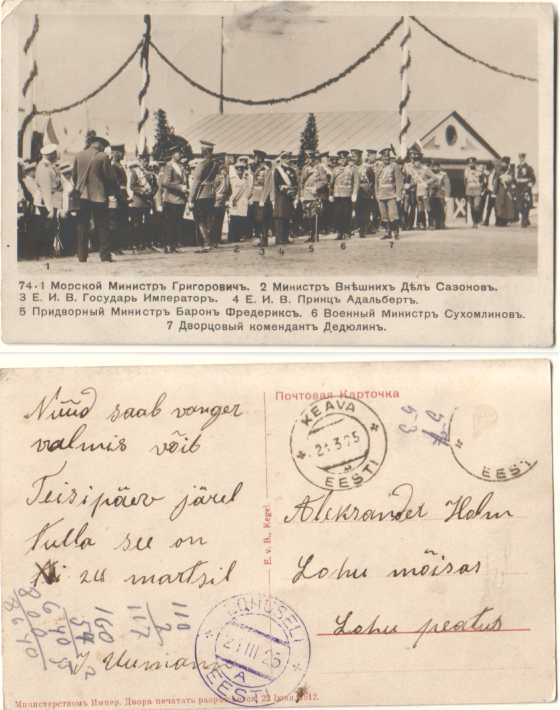 74-1 Морской Министръ Григоровичъ. 2 Министръ Внѣшнихъ Дѣлъ Сазоновъ.
3 Е. И. В. Государь Императоръ. 4 Е. И. В. Принцъ Адальбертъ.
5 Придворный Министръ Баронъ Фредериксъ. 6 Военный Министръ Сухомлиновъ.
7 Дворцовый комендантъ Дедюлинъ.
1 2 3 4 5 6 7
Почтовая Карточка
Nüüd saab vanger
valmis võib
Teisipäev järel
Kulla see on
24 martsil
KEAVA
21.3.25
EESTI
EESTI
53
Aleksander Holm
Lohu mõisas
Lohu peatus
E. v. B., Kegel.
LOHUSELJ
21 III 25
EESTI
110
2
117
160
54
640
800
8640
Министерствомъ Импер. Двора печатать